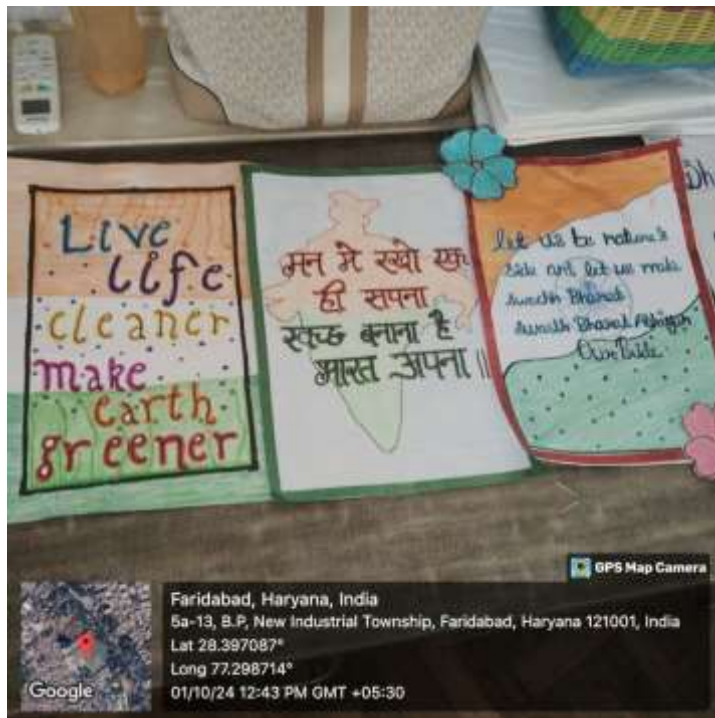 Live
life
cleaner
make
earth
greener
मन मे रखो एक
ही सपना
स्वच्छ बनाना है
भारत अपना ॥
let us be nature's
side and let us make
Swachh Bharat
Swachh Bharat Abhiyan
Our Pride
Dh
GPS Map Camera
Google
Faridabad, Haryana, India
5a-13, B.P, New Industrial Township, Faridabad, Haryana 121001, India
Lat 28.397087°
Long 77.298714°
01/10/24 12:43 PM GMT +05:30